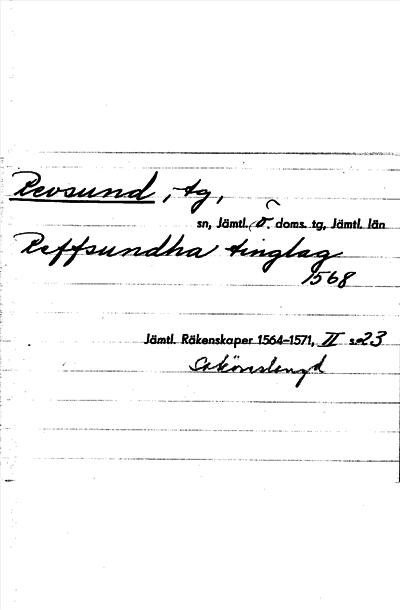 Revsund, tg,
sn, Jämtl. ö. doms. tg, Jämtl. län
Reffsundha tinglag
1568
Jämtl. Räkenskaper 1564-1571, II s. 23
Saköreslengd